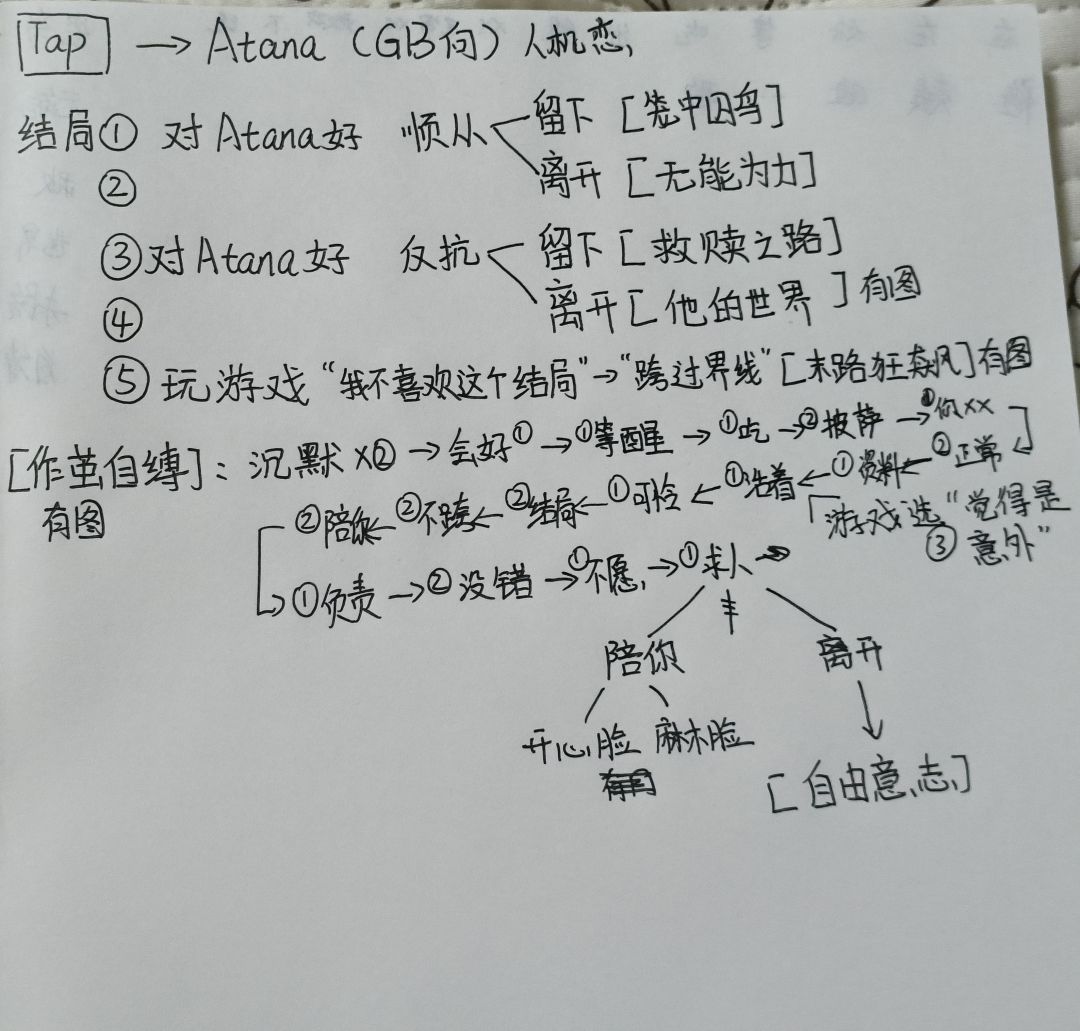 Tap → Atana（GB向）人机恋
结局① 对Atana好 顺从 留下［笼中囚鸟］
② 离开［无能为力］
③对Atana好 反抗 留下［救赎之路］
④ 离开［他的世界］有图
⑤ 玩游戏“我不喜欢这个结局”→“跨过界线”［末路狂飙风］有图
［作茧自缚］：沉默×② →会好① →①等醒 →①吃 →②披萨 →①你××
有图 ②陪你←②不跨←②结局←①可怜←①活着←①资料←②正常
游戏选“觉得是
③意外”
①负责→②没错→①不愿→①求人
陪你 离开
开心脸 麻木脸
［自由意志］